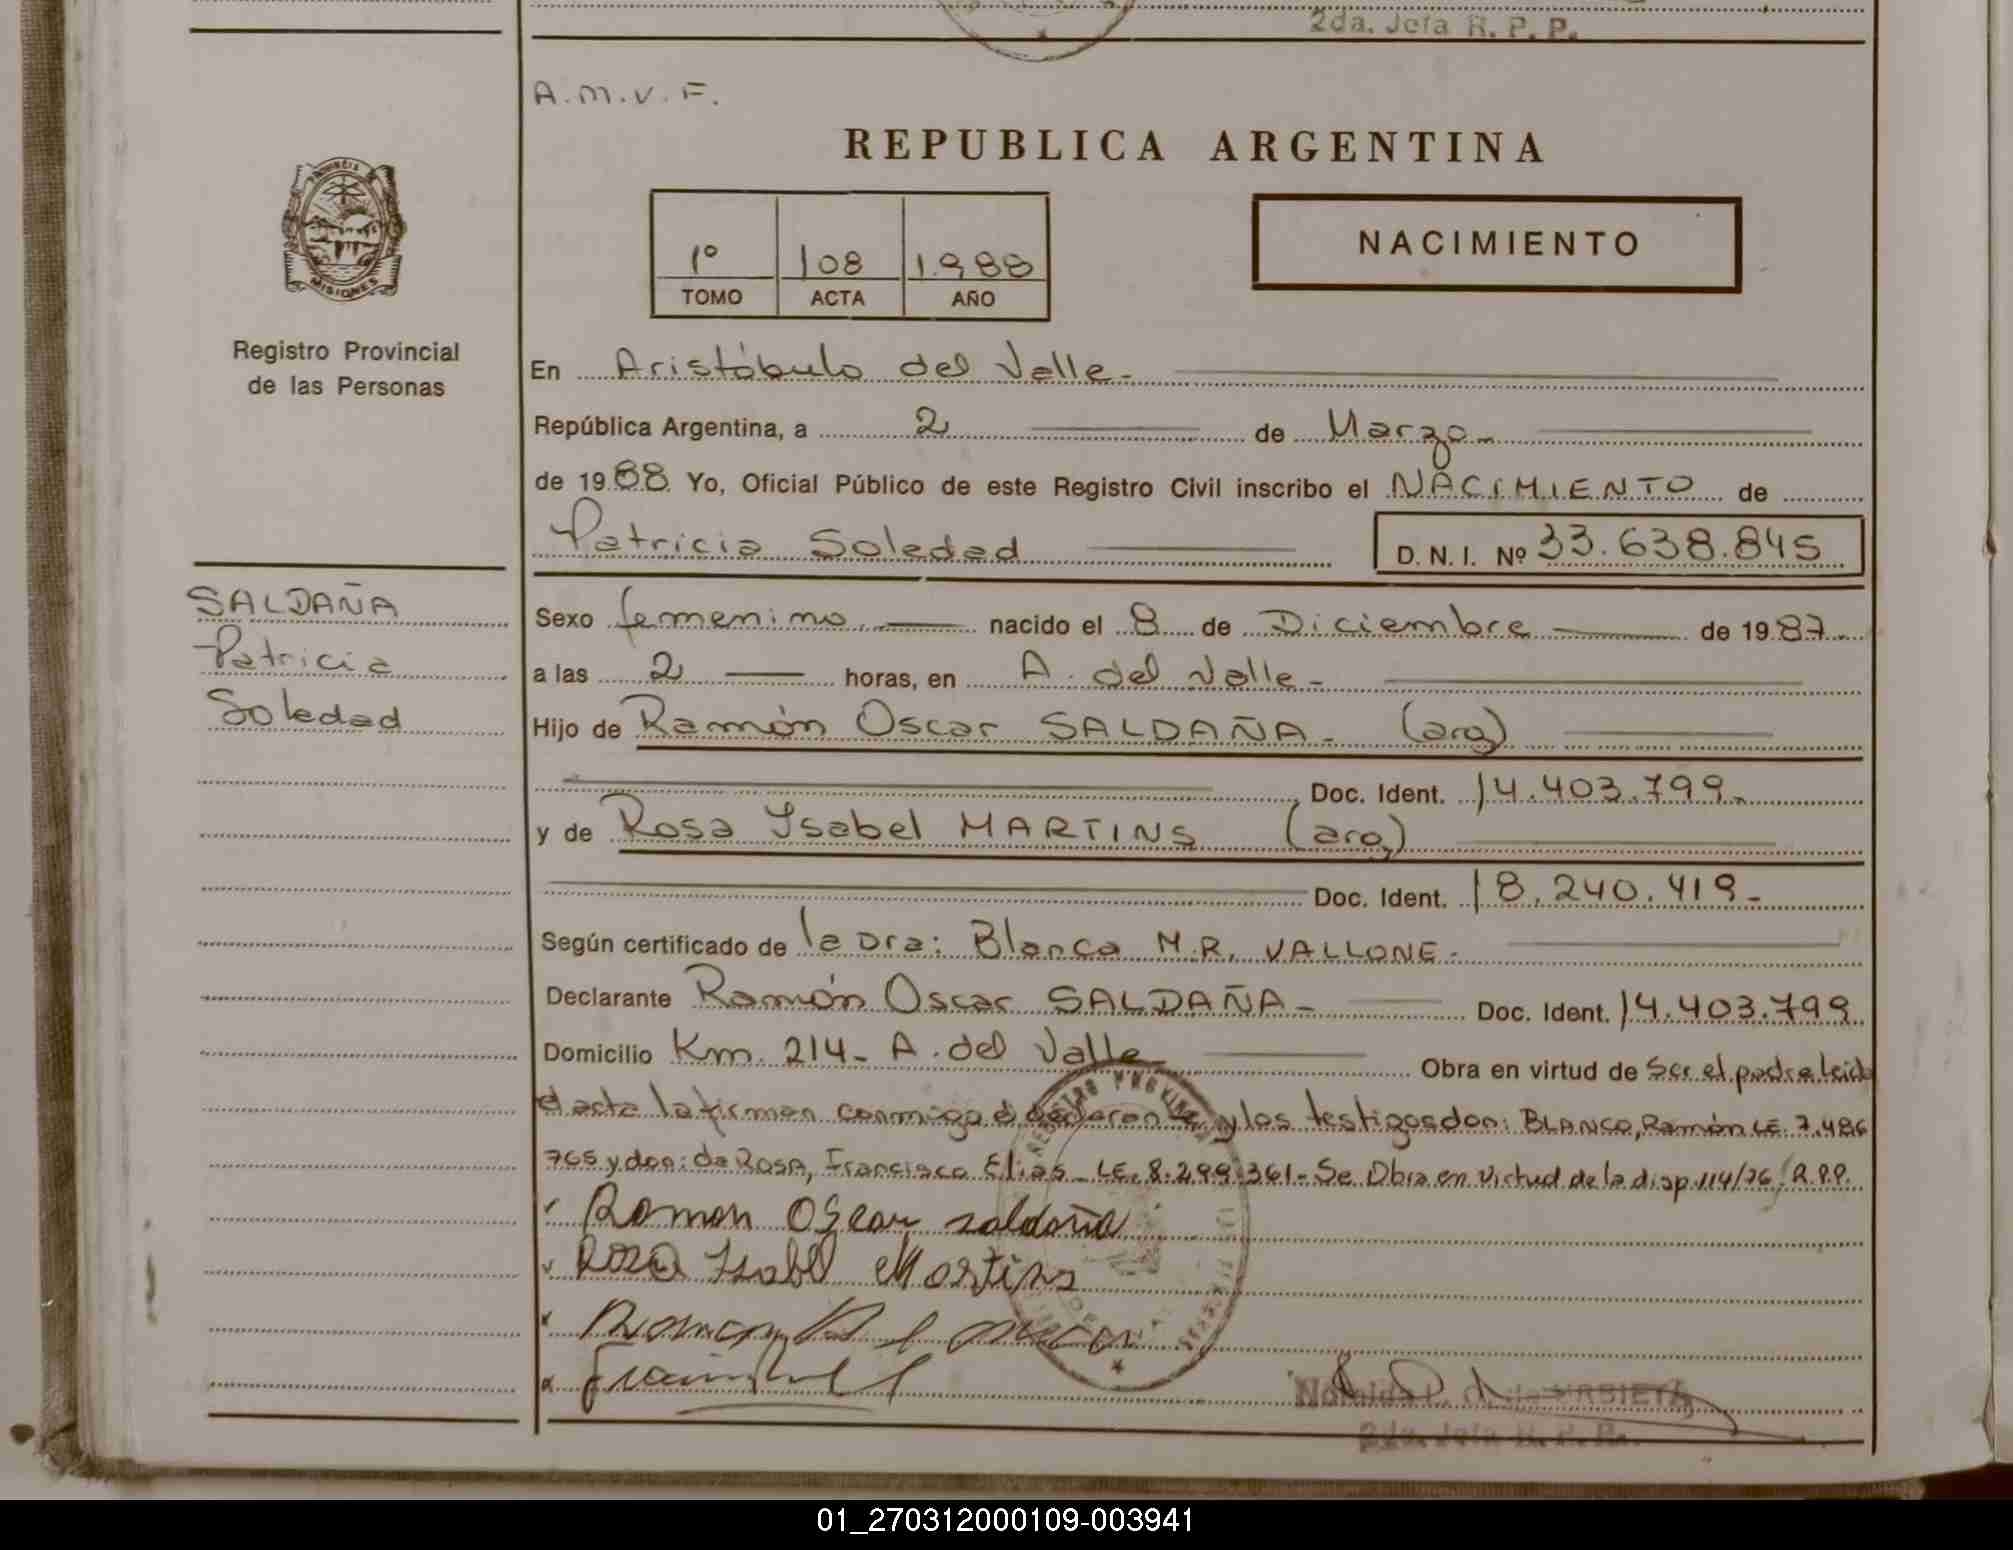 2da. Jefa R. P. P.
A.M.V.F.
REPUBLICA ARGENTINA
PROVINCIA
MISIONES
1º 108 1.988
TOMO ACTA AÑO
NACIMIENTO
Registro Provincial
de las Personas
En Aristóbulo del Valle.-
República Argentina, a 2 de Marzo.-
de 1988. Yo, Oficial Público de este Registro Civil inscribo el NACIMIENTO de
Patricia Soledad D. N. I. Nº 33.638.845
SALDAÑA
Patricia
Soledad
Sexo femenino.- nacido el 8 de Diciembre de 1987.-
a las 2 horas, en A. del Valle.-
Hijo de Ramón Oscar SALDAÑA.- (arg)
Doc. Ident. 14.403.799.-
y de Rosa Ysabel MARTINS (arg)
Doc. Ident. 18.240.419.-
Según certificado de la Dra: Blanca M.R. VALLONE.-
Declarante Ramón Oscar SALDAÑA.- Doc. Ident. 14.403.799
Domicilio Km. 214- A. del Valle Obra en virtud de Ser el padre leida
el acta la firman conmigo el declarante y los testigos don: BLANCO, Ramón LE. 7.486
765 y don: da ROSA, Francisco Elias- LE. 8.299.361- Se Obra en virtud de la disp. 114/76/R.P.P.
Ramon Oscar saldaña
Rosa Isabel Martins
2da. Jefa R. P. P.
01_270312000109-003941